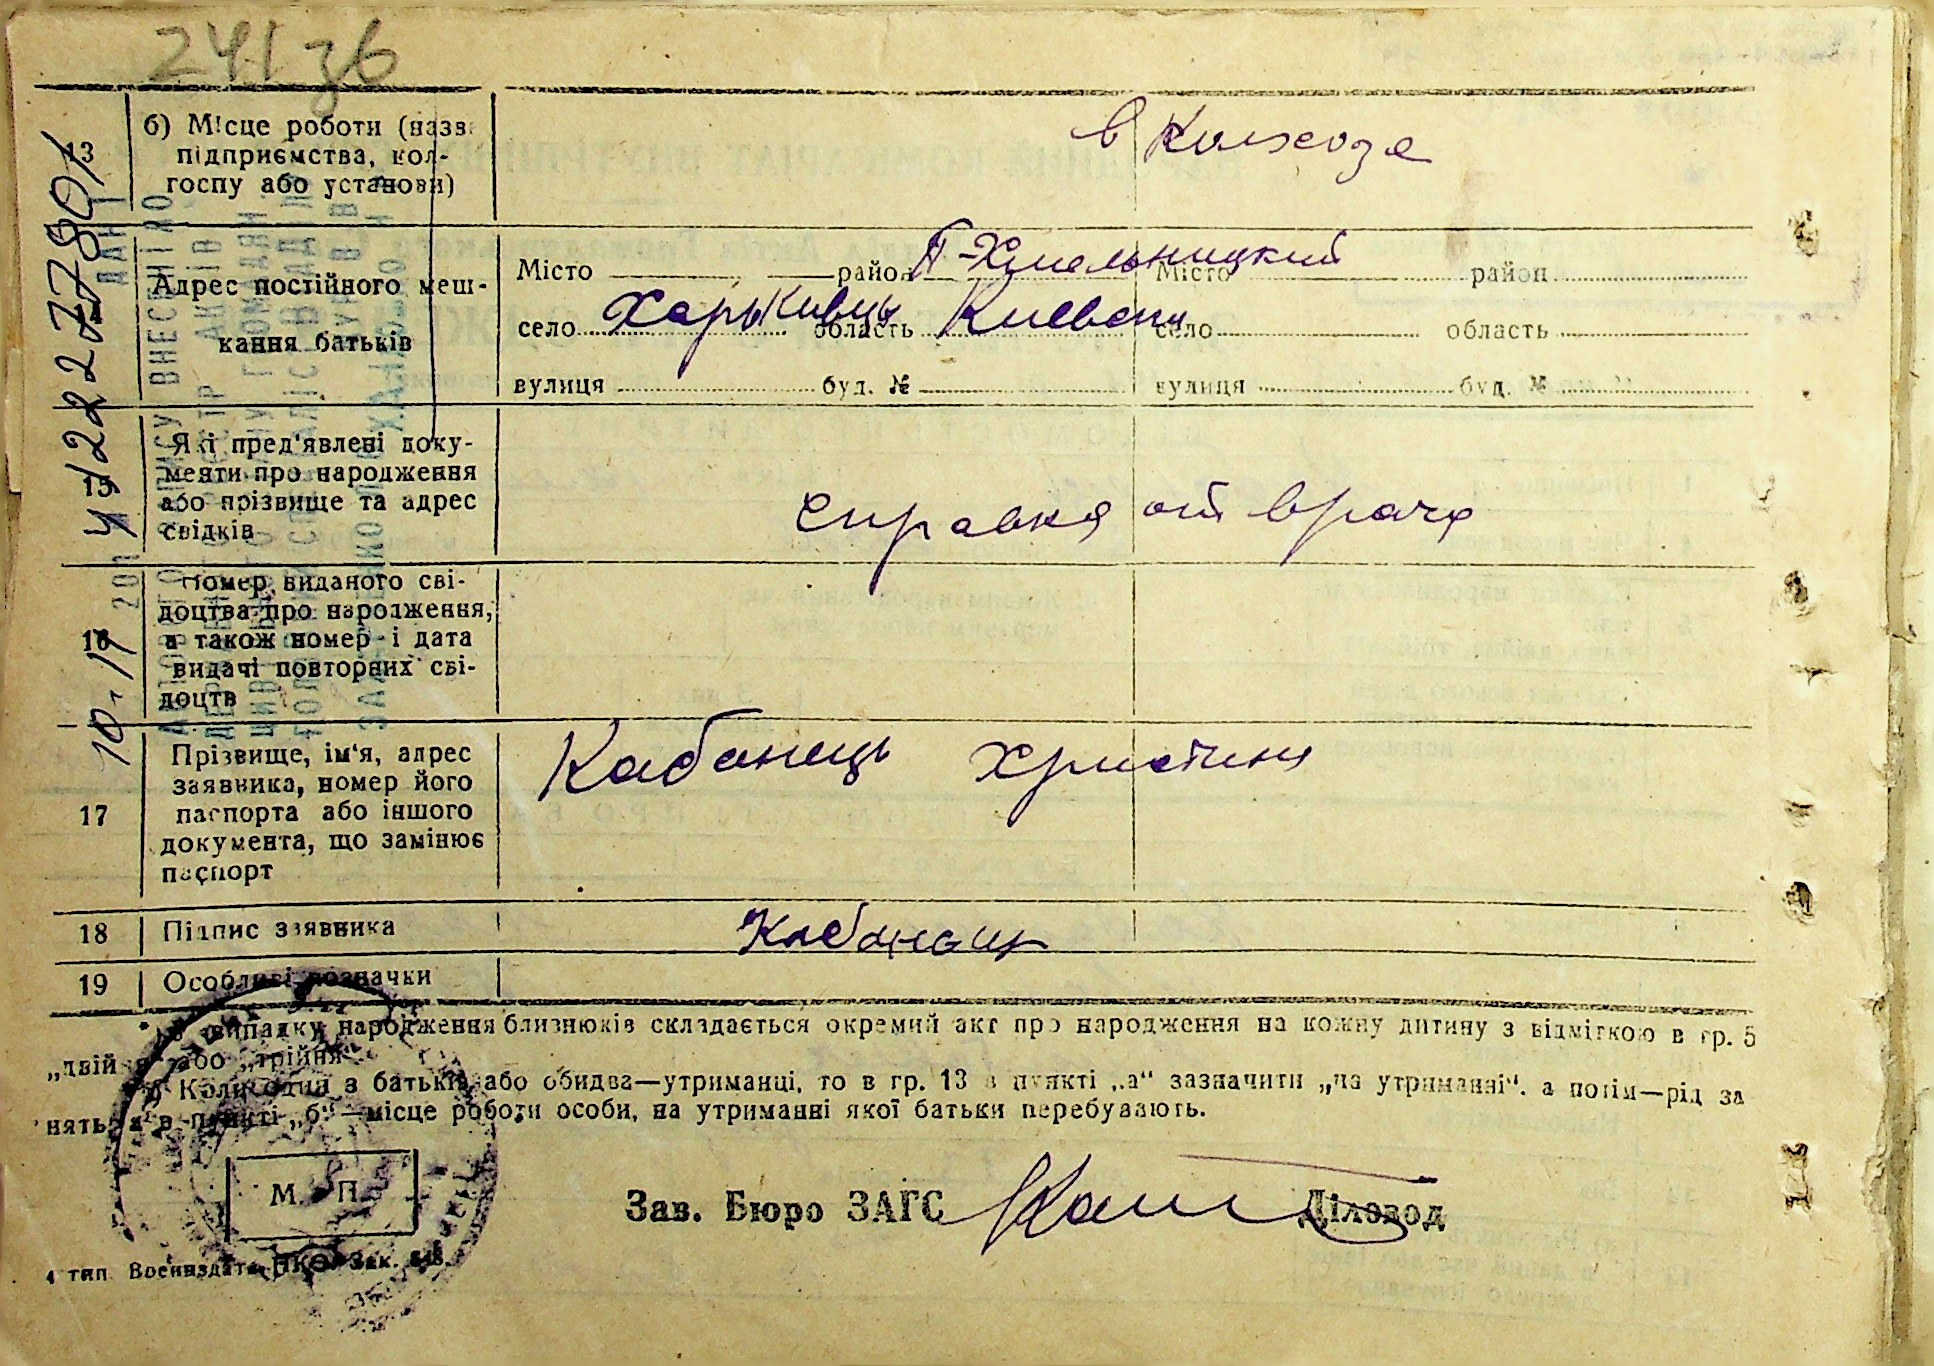 241 зб
13
б) Місце роботи (назва
підприємства, кол-
госпу або установи)
в Колхозе
Адрес постійного меш-
кання батьків
Місто район П-Хмельницкий Місто район
село Харьківцы область Киевск село область
вулиця буд. № вулиця буд. №
15
Які пред'явлені доку-
менти про народження
або прізвище та адрес
свідків
справка от врача
16
Номер виданого сві-
доцтва про народження,
а також номер і дата
видачі повторних сві-
доцтв
17
Прізвище, ім'я, адрес
заявника, номер його
паспорта або іншого
документа, що замінює
паспорт
Кабанець Христина
18 Підпис заявника Кабанець
19 Особливі позначки
випадку народження близнюків складається окремий акт про народження на кожну дитину з відміткою в гр. 5
„двійня" або „трійня"
Коли один з батьків або обидва—утриманці, то в гр. 13 в пункті „а" зазначити „на утриманні", а потім—рід за
няття в пункті „б"—місце роботи особи, на утриманні якої батьки перебувають.
М. П.
Зав. Бюро ЗАГС Діловод
4 тип. Воениздата НКО Зак.